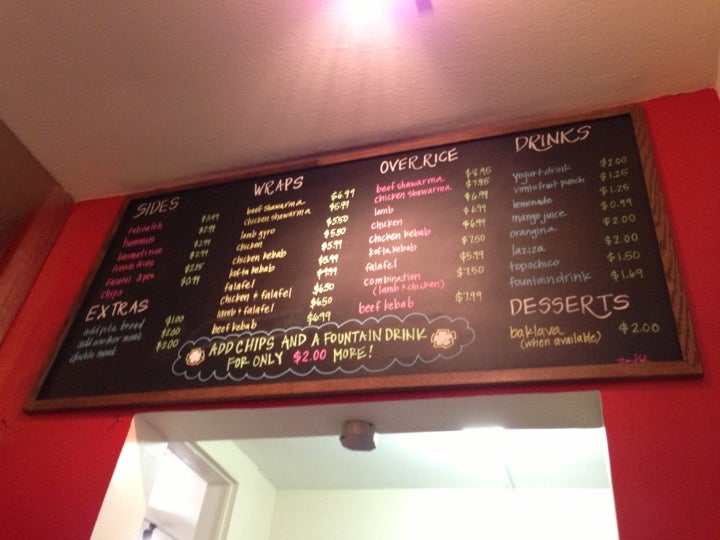 SIDES
tabouleh $3.49
hummus $2.99
basmati rice $2.99
french fries $2.99
falafel 2 pcs $2.25
chips $0.99
EXTRAS
add pita bread $1.00
add another meat $2.00
double meat $2.00
WRAPS
beef shawarma $6.99
chicken shawarma $5.99
lamb gyro $5.50
chicken $5.50
chicken kebab $5.99
kofta kebab $5.99
falafel $4.99
chicken + falafel $6.50
lamb + falafel $6.50
beef kebab $6.99
OVER RICE
beef shawarma $8.95
chicken shawarma $7.95
lamb $6.99
chicken $6.99
chicken kebab $6.99
kofta kebab $7.50
falafel $5.99
combination $7.50
(lamb + chicken)
beef kebab $7.99
DRINKS
yogurt drink $2.00
vimto fruit punch $1.25
lemonade $1.25
mango juice $0.99
orangina $2.00
laziza $2.00
topochico $1.50
fountain drink $1.69
DESSERTS
baklava $2.00
(when available)
ADD CHIPS AND A FOUNTAIN DRINK
FOR ONLY $2.00 MORE!